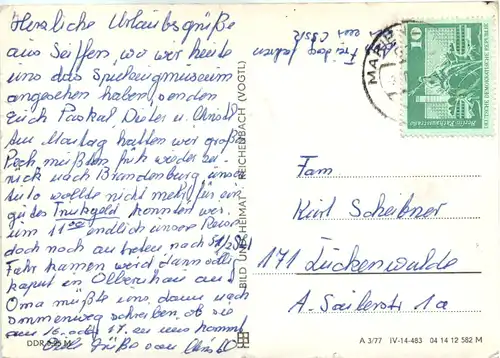 Herzliche Urlaubsgrüße
aus Seiffen, wo wir heute
uns das Spielzeugmuseum
angesehen haben, senden
Euch Paskal Dieter u. Christl
Am Montag hatten wir großes
Pech, mußten früh wieder zu-
rück nach Brandenburg unser
Auto wollte nicht mehr, für ein
gutes Trinkgeld konnten wir
um 11 00 endlich unsere Reise
doch noch an treten nach 5 1/2 Std
Fahr kamen wir dann
kaput in Olbernhau an
Oma müßte uns dann nach
Pommenweg schreiben, ob sie
am 16. oder 17. zu uns kommt
Viele Grüße von Christl
Freitag fahren
wir in eur CSSR
MARIENB
10
Berlin, Rathausstraße
DEUTSCHE DEMOKRATISCHE REPUBLIK
BILD UND HEIMAT REICHENBACH (VOGTL)
Fam.
Kurt Scheibner
171 Luckenwalde
A. Sailerstr 1a
DDR M
A 3/77 IV-14-483 04 14 12 582 M